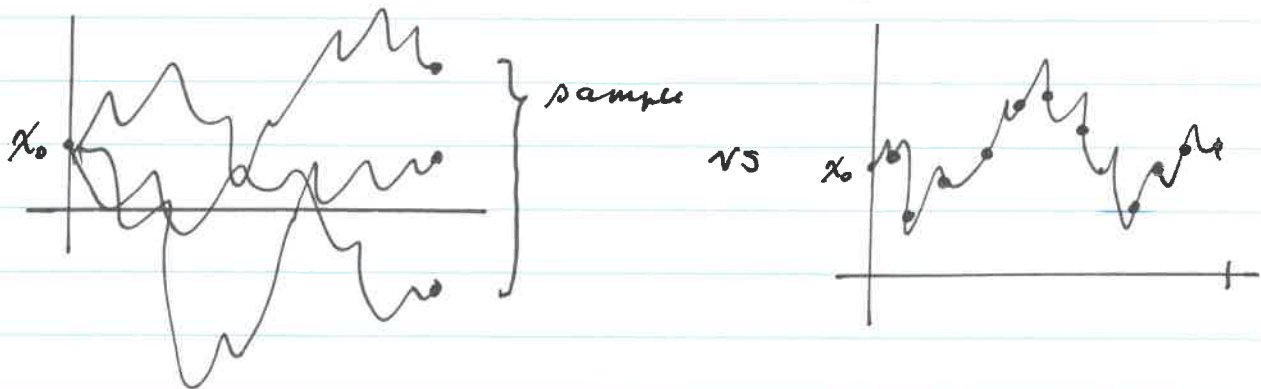 x₀ } sample vs x₀